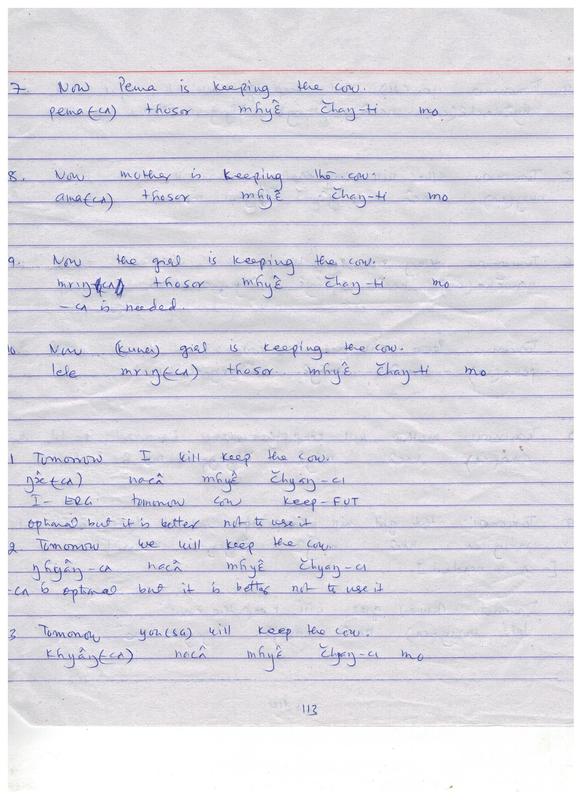 7. Now Pema is keeping the cow.
pema(-cʌ) thosor mhyê čhaŋ-ti mo
8. Now mother is keeping the cow.
ama(-cʌ) thosor mhyê čhaŋ-ti mo
9. Now the girl is keeping the cow.
mriŋ(-cʌ) thosor mhyê čhaŋ-ti mo
-cʌ is needed.
10. Now girl is keeping the cow.
lele mriŋ(-cʌ) thosor mhyê čhaŋ-ti mo
1 Tomorrow I will keep the cow.
(-cʌ) nacâ mhyê čhyaŋ-cɪ
I- ERG tomorrow cow keep-FUT
optional but it is better not to use it
2. Tomorrow we will keep the cow.
ŋhyâŋ-cʌ nacâ mhyê čhyaŋ-cɪ
-cʌ is optional but it is better not to use it
3 Tomorrow you(SG) will keep the cow.
khyâŋ(-cʌ) nacâ mhyê čhyaŋ-cɪ mo
113